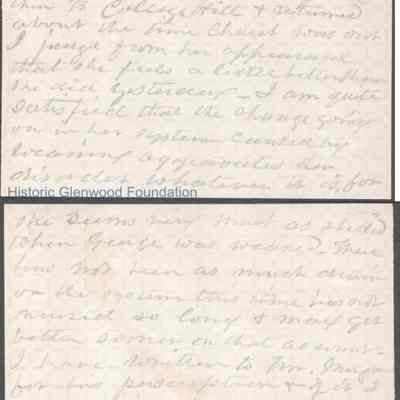 to College Hill & returned
about the time Church was out
I judge from her appearance
that she feels a little better than
she did yesterday - I am quite
satisfied that the change going
on in her system caused by
weaning aggravates her
disorder whatever it is, for
Historic Glenwood Foundation
she seems very much as she did
when George was weaned. There
has not been as much drain
on the system this time has not
nursed so long & may get
better sooner on that account
I have written to Mr.
for his prescription & if it